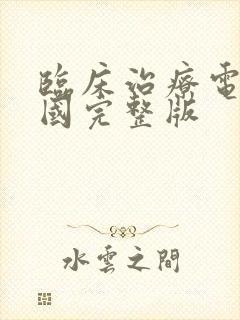 臨床治療電
國完整版
水雲之間